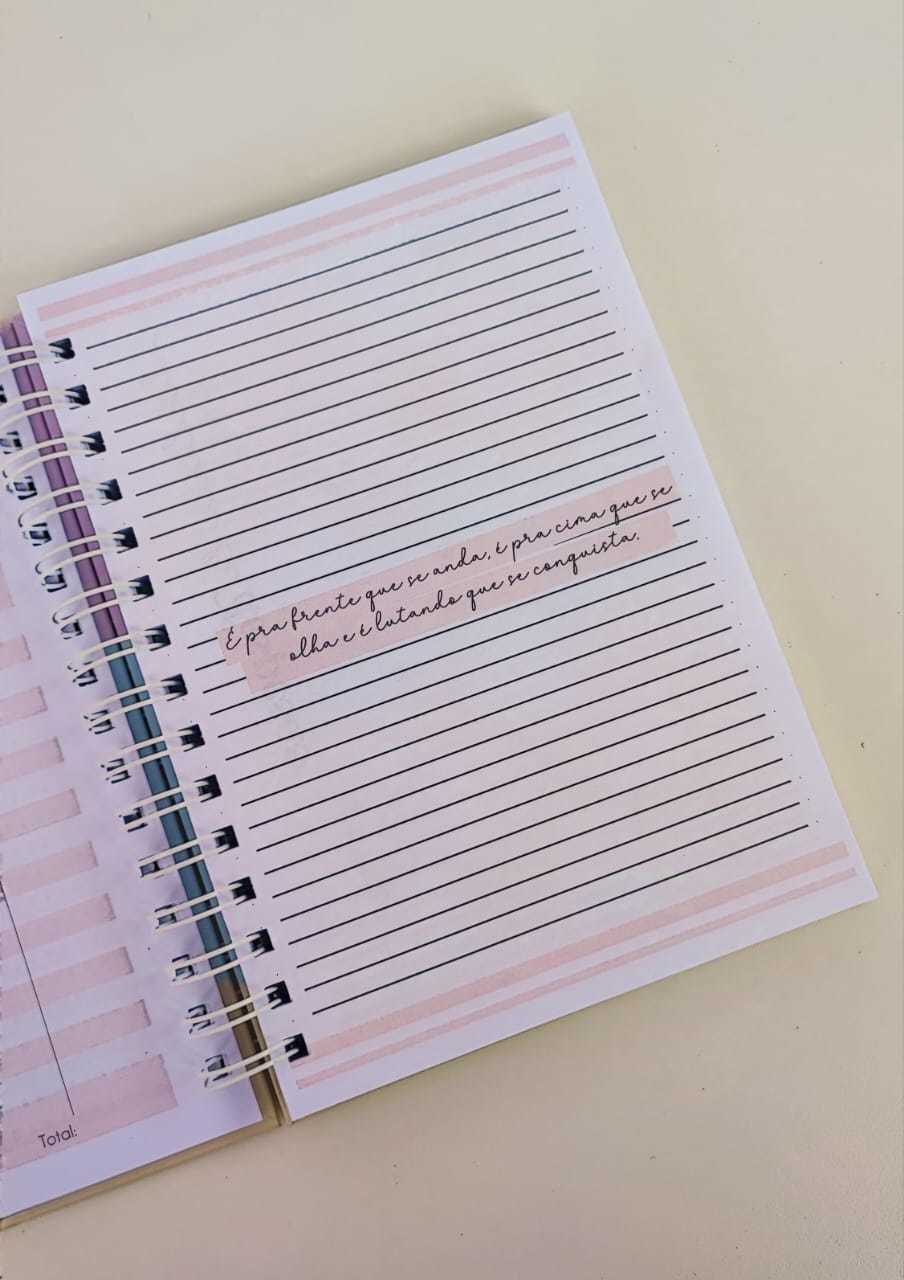 É pra frente que se anda, é pra cima que se
olha e é lutando que se conquista.
Total: